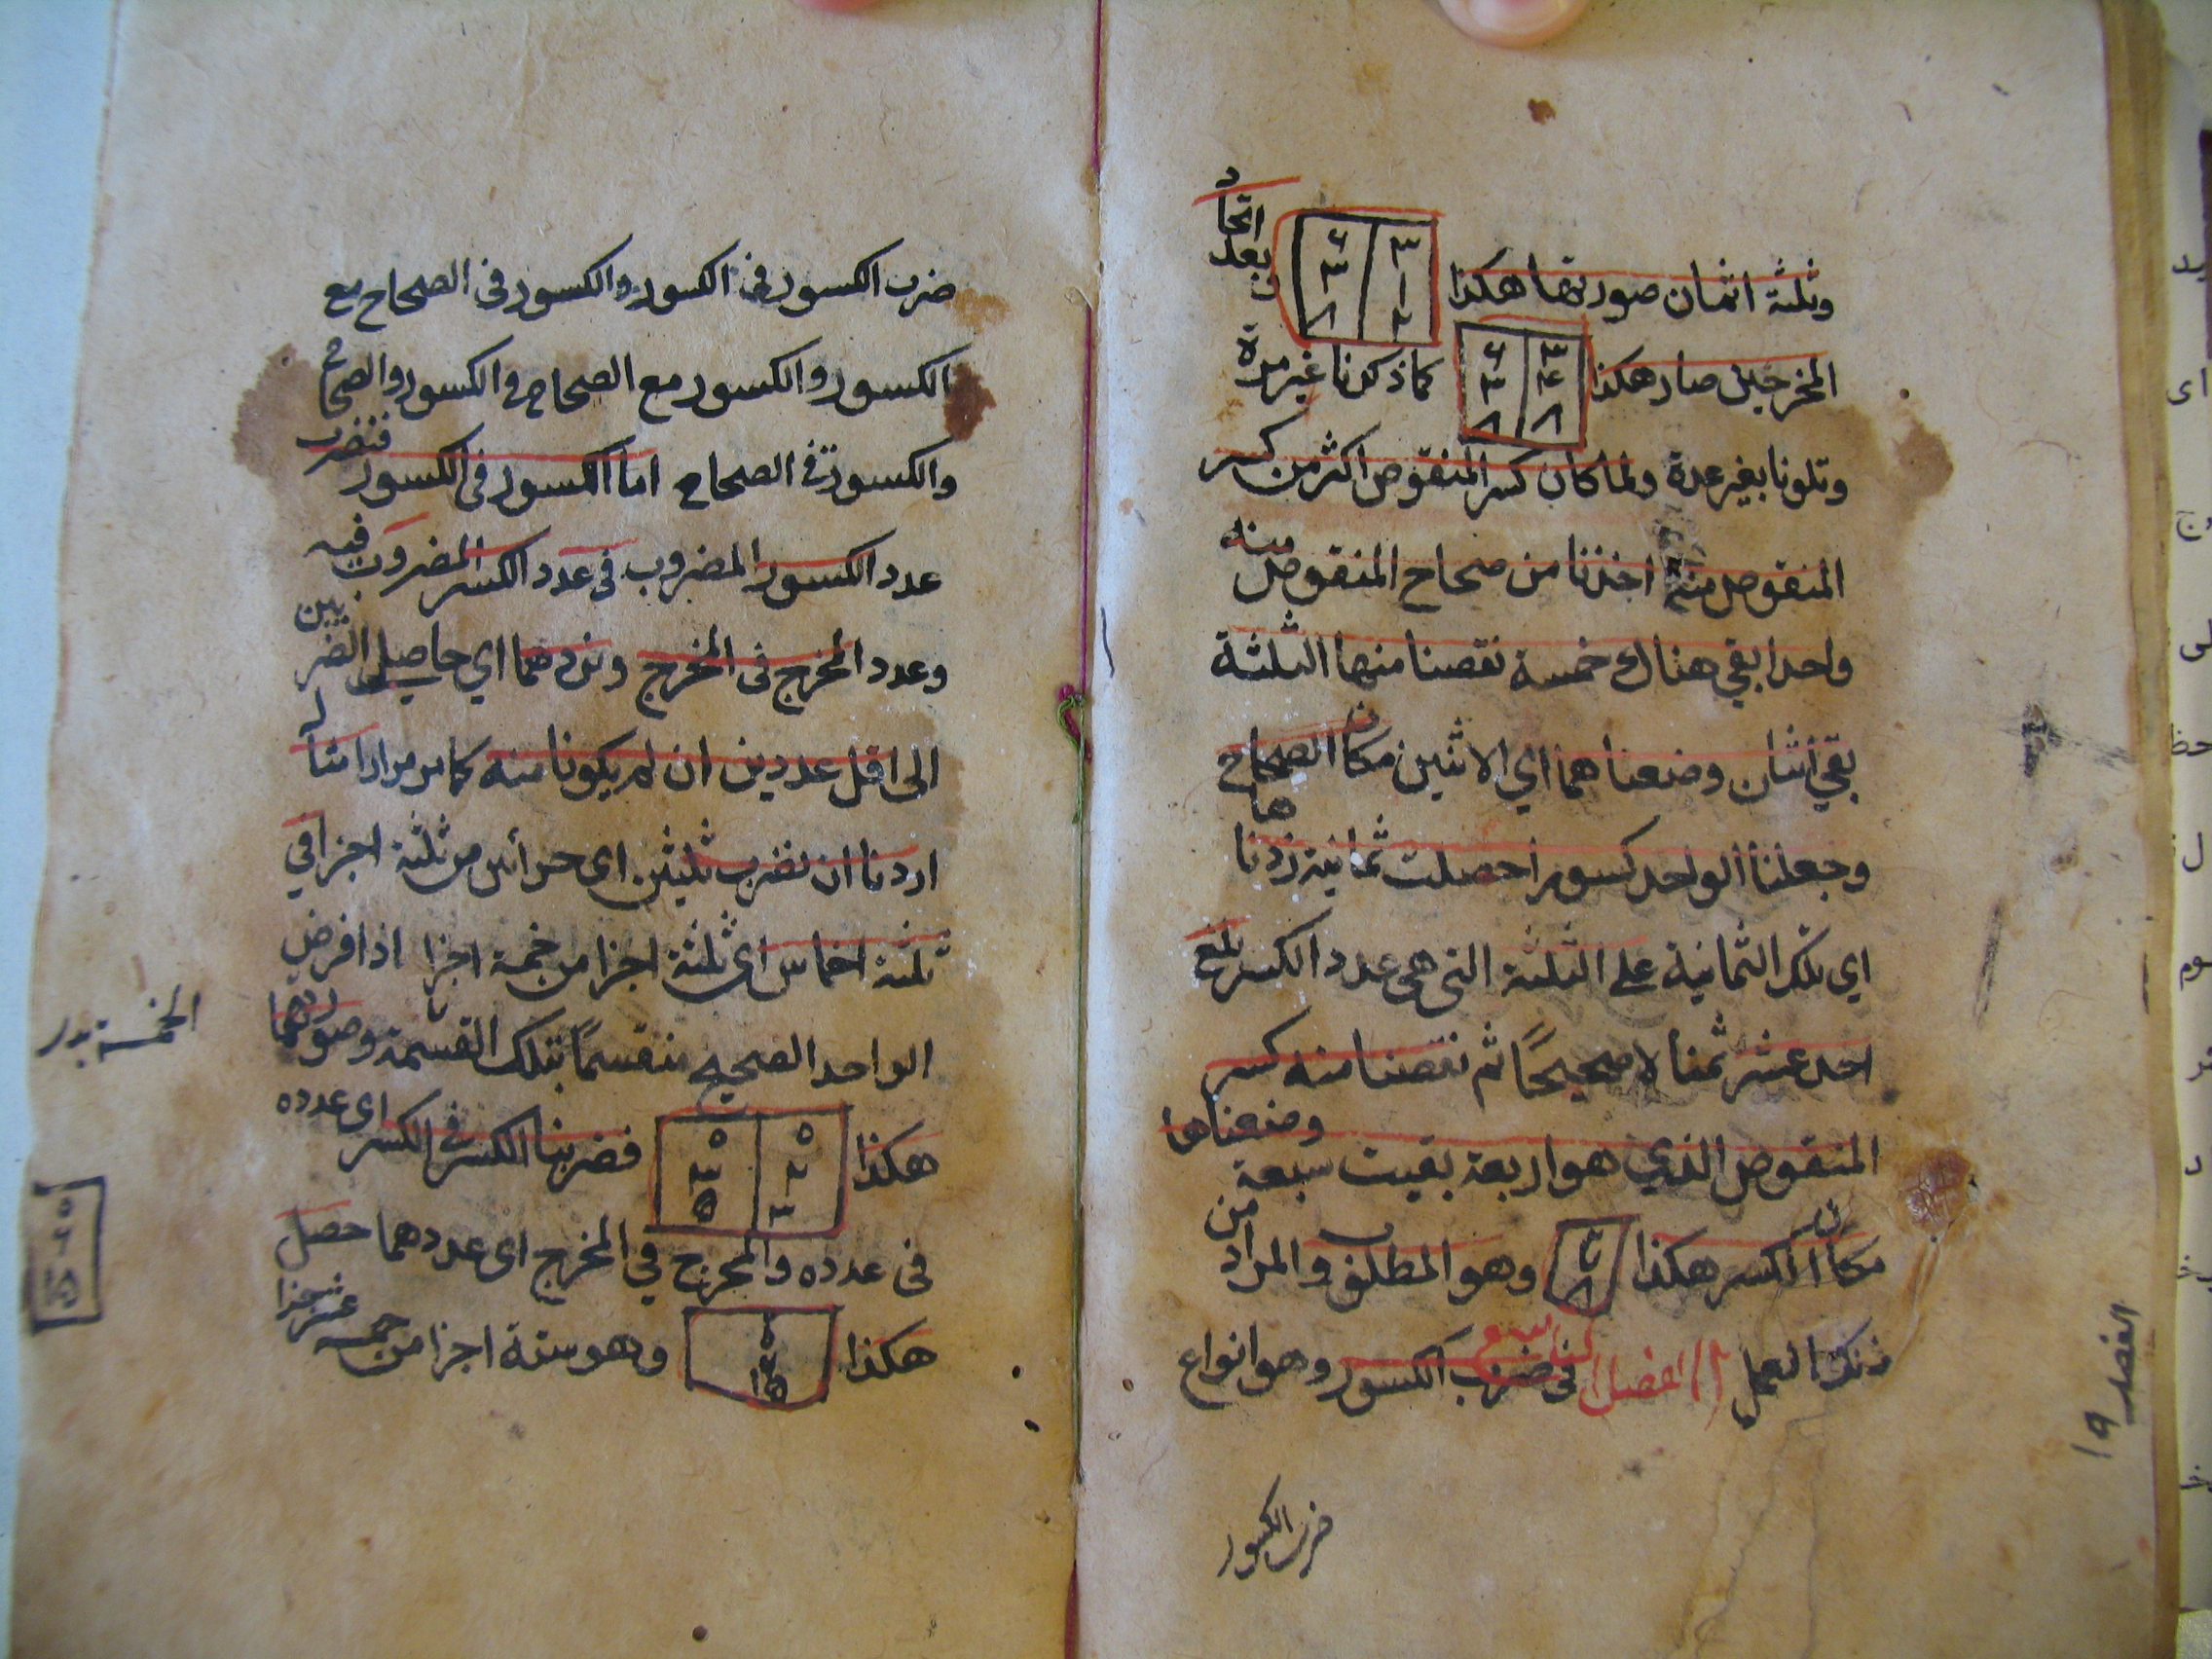 وثلثة اثمان صورتها هكذا ٣ ١ ٢ ٦ ٣ ٨ وبعد اتحاد
المخرجين صار هكذا ٣ ٤ ٨ ٦ ٣ ٨ كما ذكرنا غير مرة
وتلونا بغير عدة ولما كان كسر المنقوص اكثر من كسر
المنقوص منه اخذنا من صحاح المنقوص منه
واحدا بقي هناك خمسة نقصنا منها الثلثة
بقي اثنان وضعناهما اي الاثنين مكان الصحاح
وجعلنا الواحد كسورا حصلت ثمانية زدناها
اي تلك الثمانية على الثلثة التي هي عدد الكسر بلغ
احد عشر ثمنا لا صحيحًا ثم نقصنا منه كسر
المنقوص الذي هو اربعة بقيت سبعة وضعناها
مكان الكسر هكذا وهو المطلوب والمراد من
ذلك العمل الفصل السابع في ضرب الكسور وهو انواع
ضرب الكسور
الفصل
ضرب الكسور في الكسور والكسور في الصحاح مع
الكسور والكسور مع الصحاح في الكسور والصحاح
والكسور في الصحاح اما الكسور في الكسور فنضرب
عدد الكسور المضروب في عدد الكسر المضروب فيه
وعدد المخرج في المخرج ونردهما اي حاصلي الضربين
الى اقل عددين ان لم يكونا منه كما مر مرارا مثاله
اردنا ان نضرب ثلثين اى جزأين من ثلثة اجزا في
ثلثة اخماس اى ثلثة اجزا من خمسة اجزا اذا فرض
الواحد الصحيح منقسمًا بتلك القسمة وصورتهما
هكذا ٠ ٢ ٣ ٠ ٣ ٥ فضربنا الكسر في الكسر اى عدده
في عدده والمخرج في المخرج اى عددهما حصل
هكذا ٠ ٦ ١٥ وهو ستة اجزا من خمسة عشر جزا